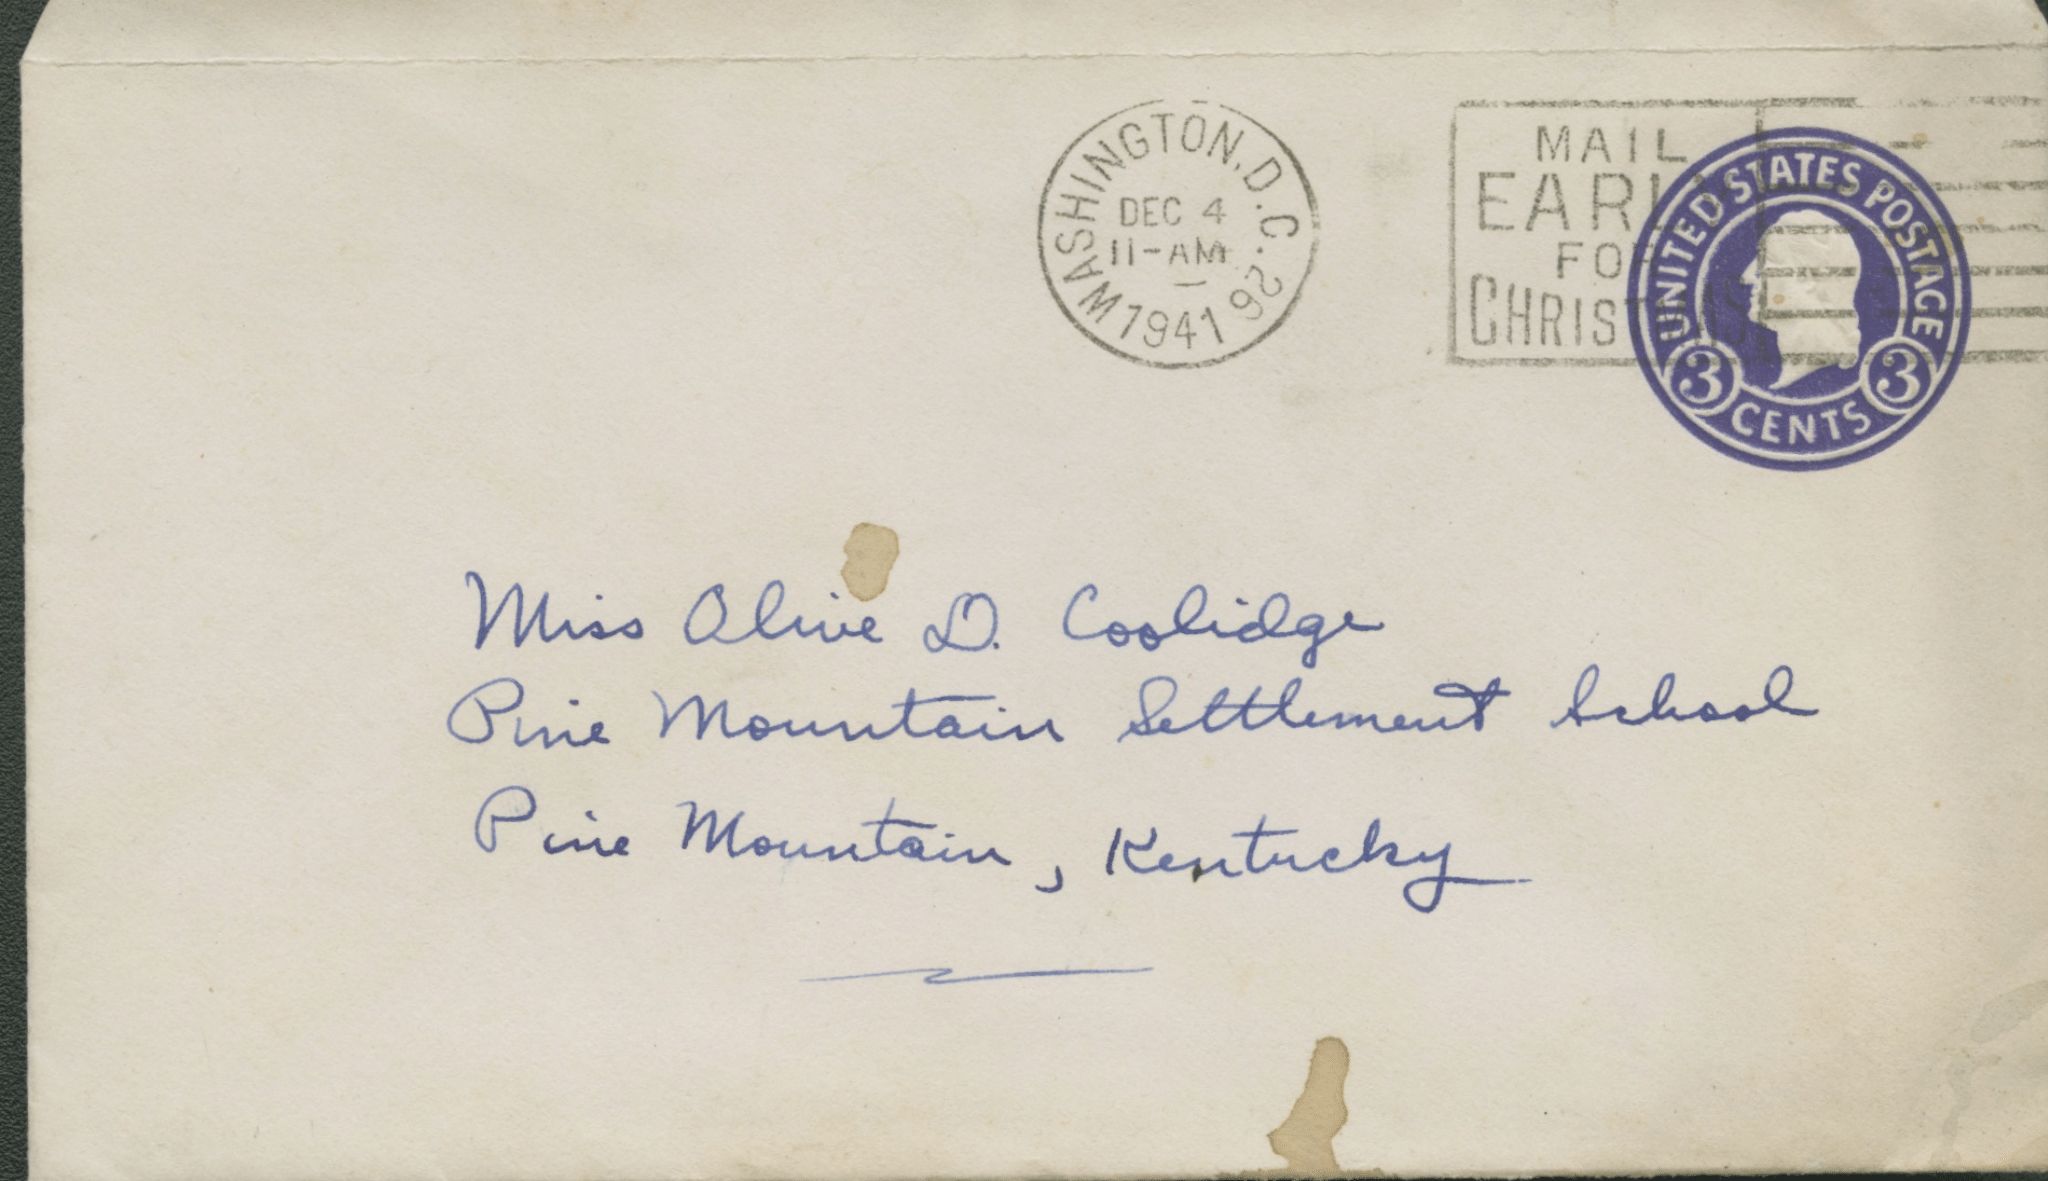 WASHINGTON, D.C. 26
DEC 4
11-AM
1941
MAIL
EARLY
FOR
CHRISTMAS
UNITED STATES POSTAGE
3 CENTS 3
Miss Olive D. Coolidge
Pine Mountain Settlement School
Pine Mountain, Kentucky